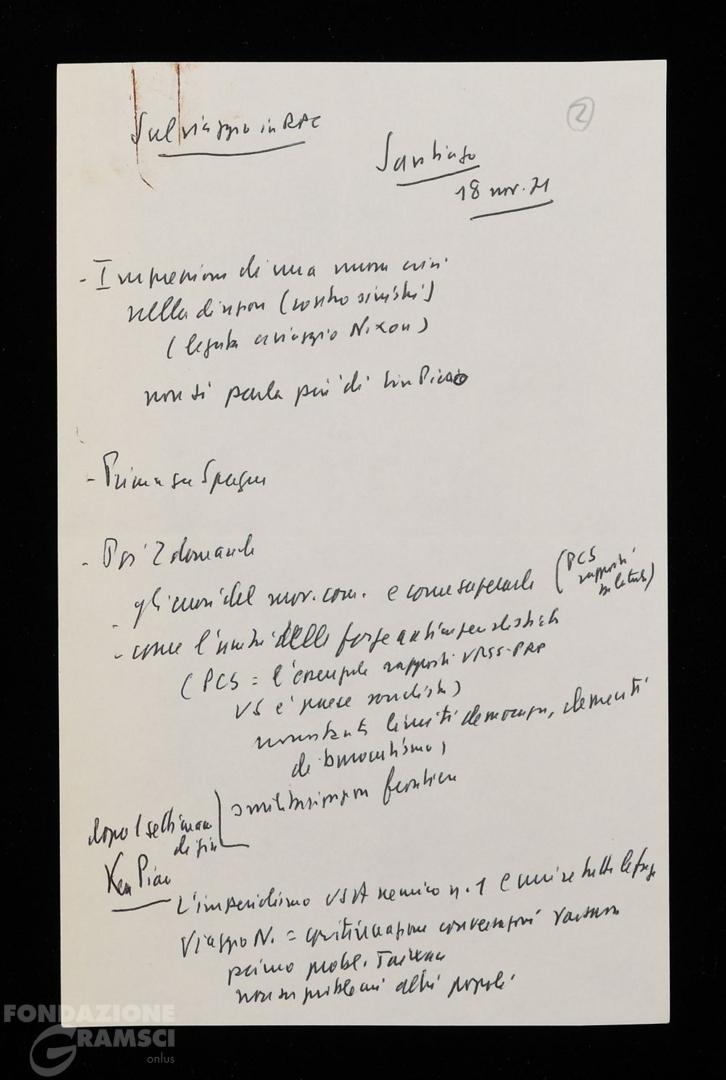 2
Sul viaggio in RPC
Santiago
18 nov. 71
- Impressione di una nuova crisi
nella direzione (contro sinistri)
(legata a viaggio Nixon)
non si parla più di Lin Piao
- Prima su Spagna
- Poi 2 domande
- gli errori del mov. com. e come superarle (PCS rapporti bilaterali)
- come l'unità delle forze antimperialistiche
(PCS = l'esempio rapporti URSS-
US è paese socialista)
nonostante limiti democrazia, elementi
di burocratismo,
smilitarizzazione frontiera
dopo 1 settimana
di
Piao
L'imperialismo USA nemico n. 1 e unire tutte le forze
Viaggio N. = continuazione conversazioni Varsavia
primo probl. Taiwan
non su problemi altri popoli
FONDAZIONE
GRAMSCI
onlus